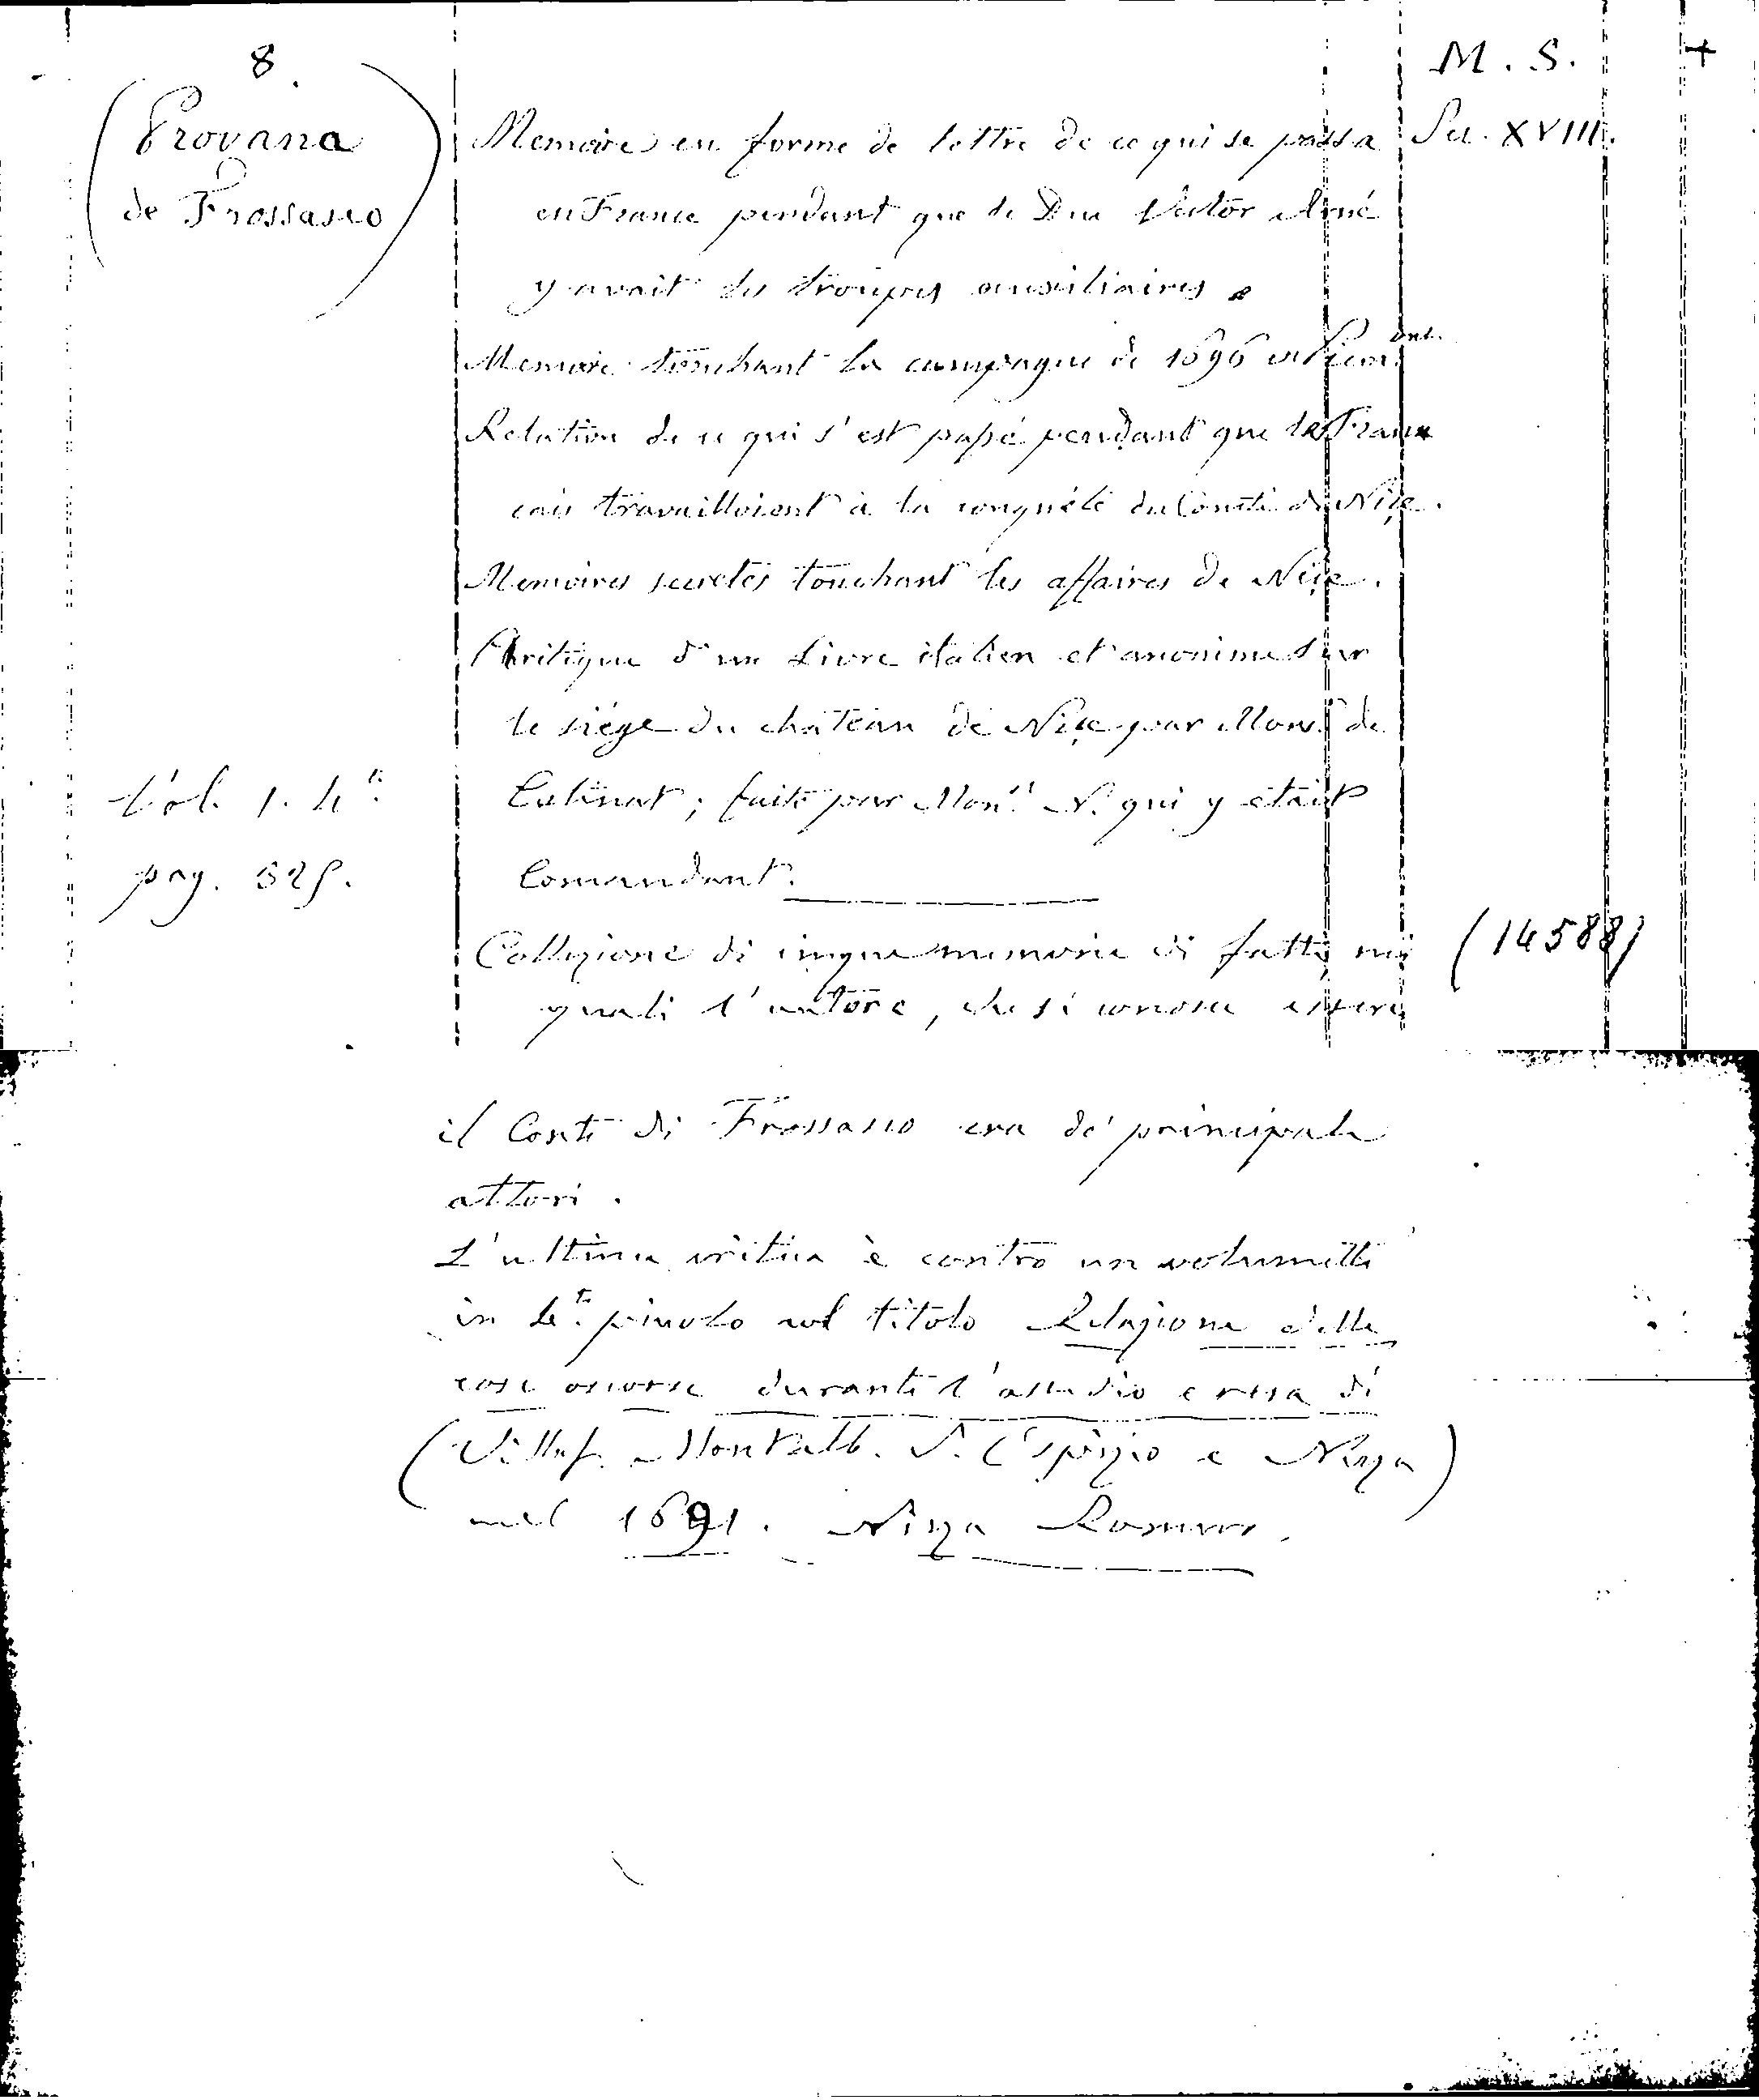 8.
M. S. +
(Provana
de Frossasco)
Sec. XVIII.
Memoire en forme de lettre de ce qui se passa
en France pendant que le Duc Victor Amé
y avait des troupes auxiliaires.
Memoire touchant la campagne de 1696 en Piemont.
Relation de ce qui s'est passé pendant que les Fran
cais travailloient à la conquête du Comté de Nice.
Memoires secretes touchant les affaires de Nice.
Critique d'un Livre italien et anonime sur
le siége du château de Nice par Mons.r de
Catinat; faite par Mons.r N. qui y était
Comandant.
Vol. 1. 4.to
pag. 525.
Collezione di cinque memorie di fatti nei
quali l'autore, che si conosce essere
(14588)
il Conte di Frossasco era de' principali
attori.
L'ultima critica è contro un volumetto
in 4.to piccolo col titolo Relazione delle
cose occorse durante l'assedio e resa di
(Villaf. Montalb. S. Espizio e Nizza)
nel 1691. Nizza Romero.